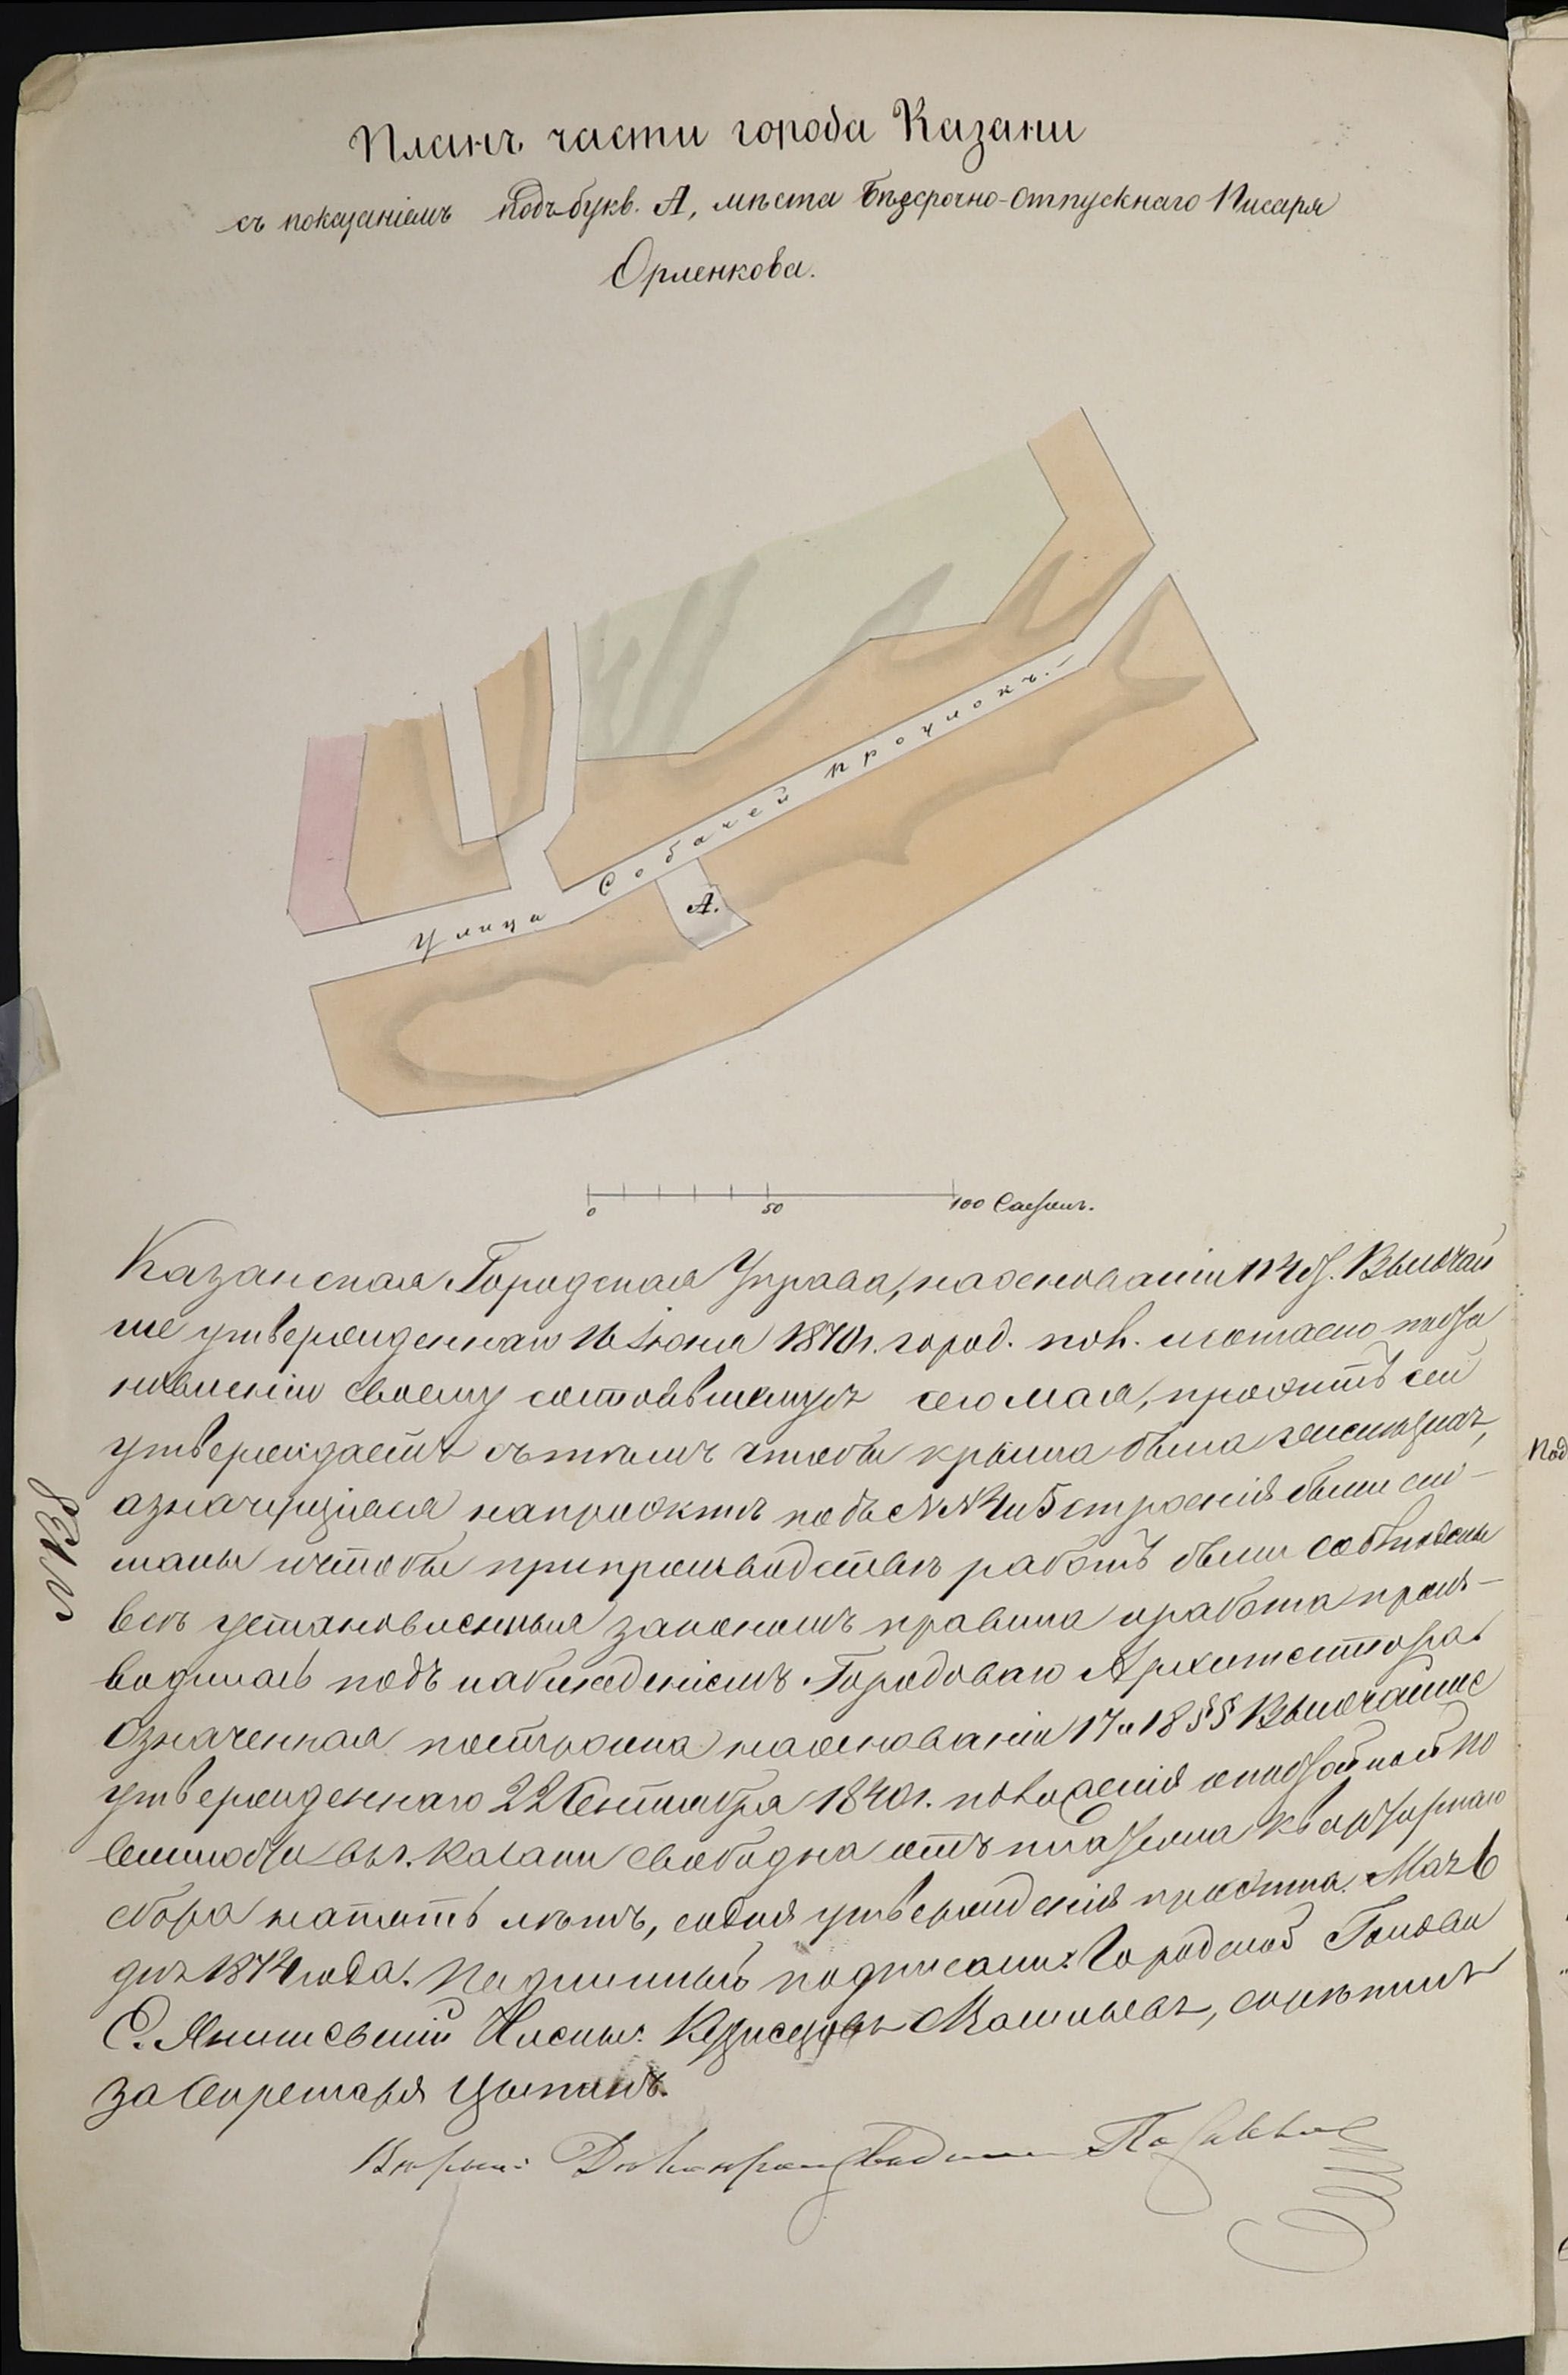 Планъ части города Казани
съ показаніемъ подъ букв. А, мѣста Безсрочно-Отпускнаго Писаря
Орленкова.
Улица Собачей проулокъ.
А.
0 50 100 Сажень.
Казанская Городская Управа, на основаніи 114 § Высочай
ше утвержденнаго 16 Іюня 1870 г. город. пол. и согласно поста
новленію своему состоявшемуся сего Мая, проэктъ сей
утверждаетъ съ тѣмъ чтобы крыша была
означающіяся на проэктѣ подъ №№ 4 и 5 строенія были сло-
маны и чтобы при производствѣ работъ были соблюдены
всѣ установленныя закономъ правила и работа произ-
водилась подъ наблюденіемъ Городоваго Архитектора.
Означенная постройка на основаніи 17 и 18 §§ Высочайше
утвержденнаго 22 Сентября 1840 г. положенія о квартирной по
винности въ г. Казани свободна отъ платежа квартирнаго
сбора на пять лѣтъ, со дня утвержденія проэкта. Мая 6
дня 1874 года. Подлинный подписали: Городской Голова
Э. Янишевскій Члены: Васильевъ, скрѣпилъ
за Секретаря Цыпинъ.
Вѣрно: Дѣлопроизводитель
№ 138
Под